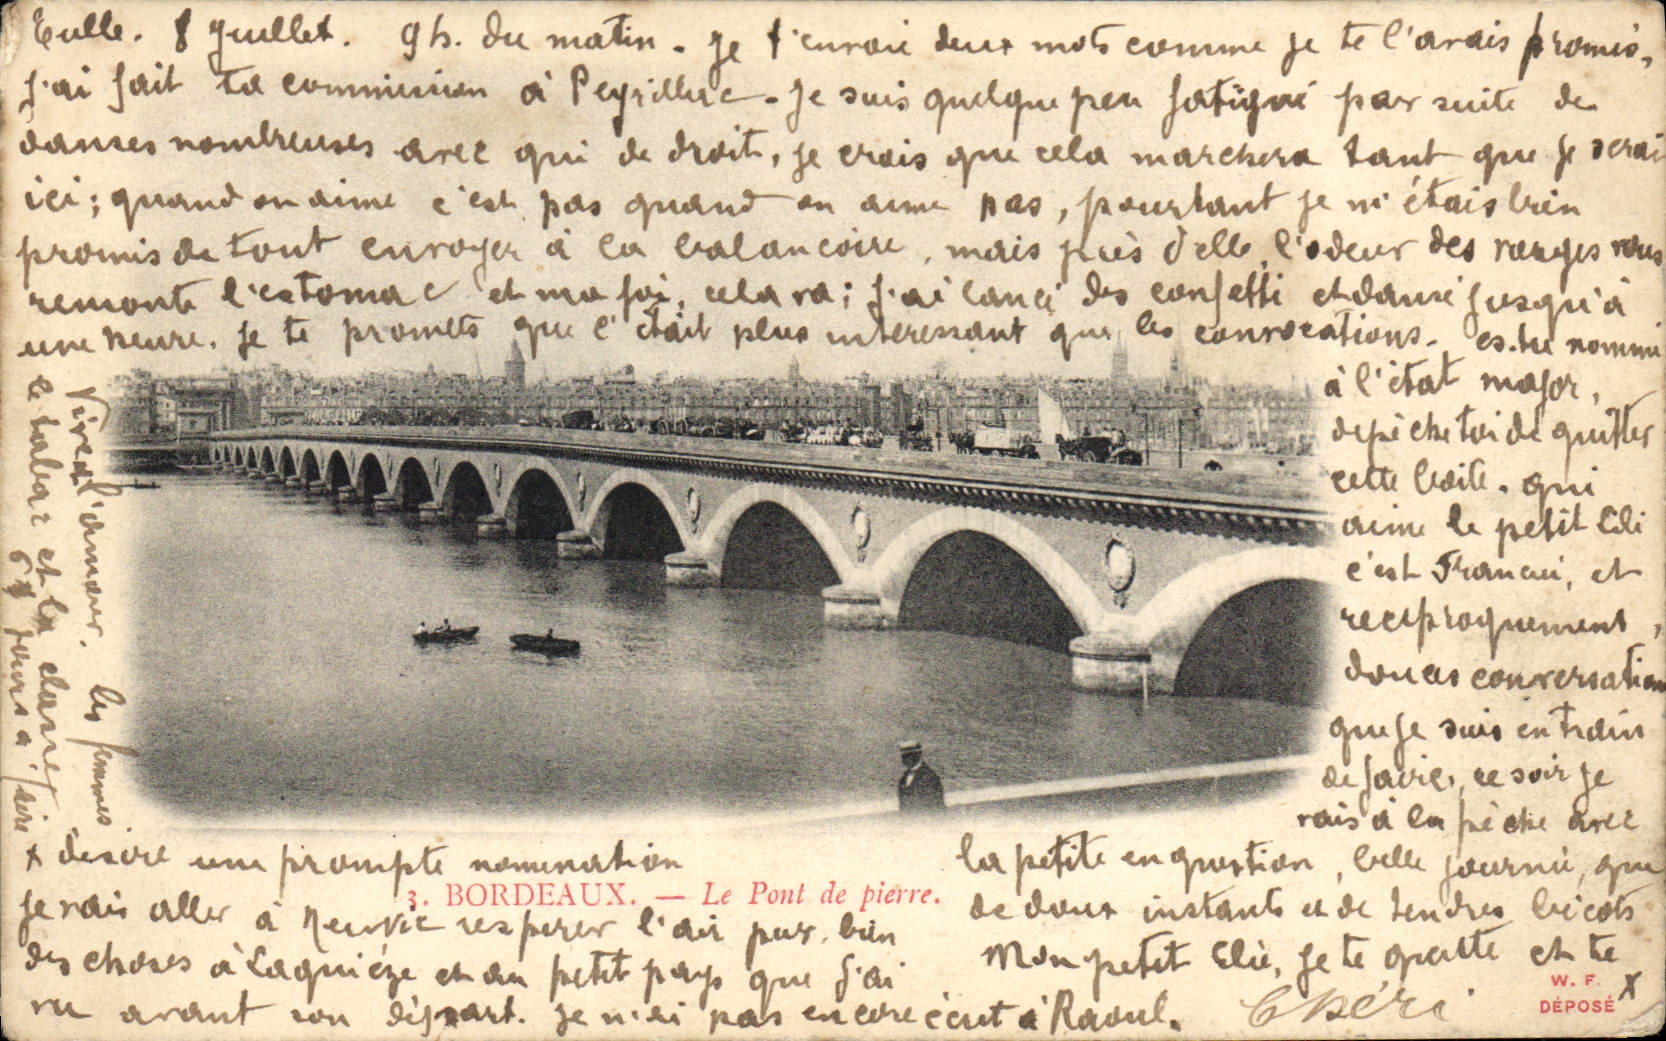 Tulle. 8 Juillet. 9h. du matin. Je t'envoie deux mots comme je te l'avais promis,
j'ai fait ta commission à - Je suis quelque peu fatigué par suite de
danses nombreuses avec qui de droit, je crois que cela marchera tant que je serai
ici; quand on aime c'est pas quand on aime pas, pourtant je m'étais bien
promis de tout envoyer à la balançoire, mais près d'elle, l'odeur des vous
remonte l'estomac et ma foi, cela va; j'ai lancé des confetti et dansé jusqu'à
une heure. Je te promets que c'était plus interessant que les convocations. es-tu nommé
à l'état major,
dépêche toi de quitter
cette boite. qui
aime le petit Eli
c'est et
reciproquement,
douces conversation
que je suis en train
de faire, ce soir je
vais à la pèche avec
la petite en question, belle journée, que
de doux instants et de tendres bécots
Mon petit Elie, je te quitte et te
X désire une prompte nomination
Je vais aller à Neuvic respirer l'air pur, bien
des choses à Laguiéze et au petit pays que j'ai
vu avant son départ. Je n'ai pas encore écrit à Raoul.
Chéri
Vive l'amour. les femmes
le tabac et la
jours à tire
3. BORDEAUX. — Le Pont de pierre.
W. F.
DÉPOSÉ
X